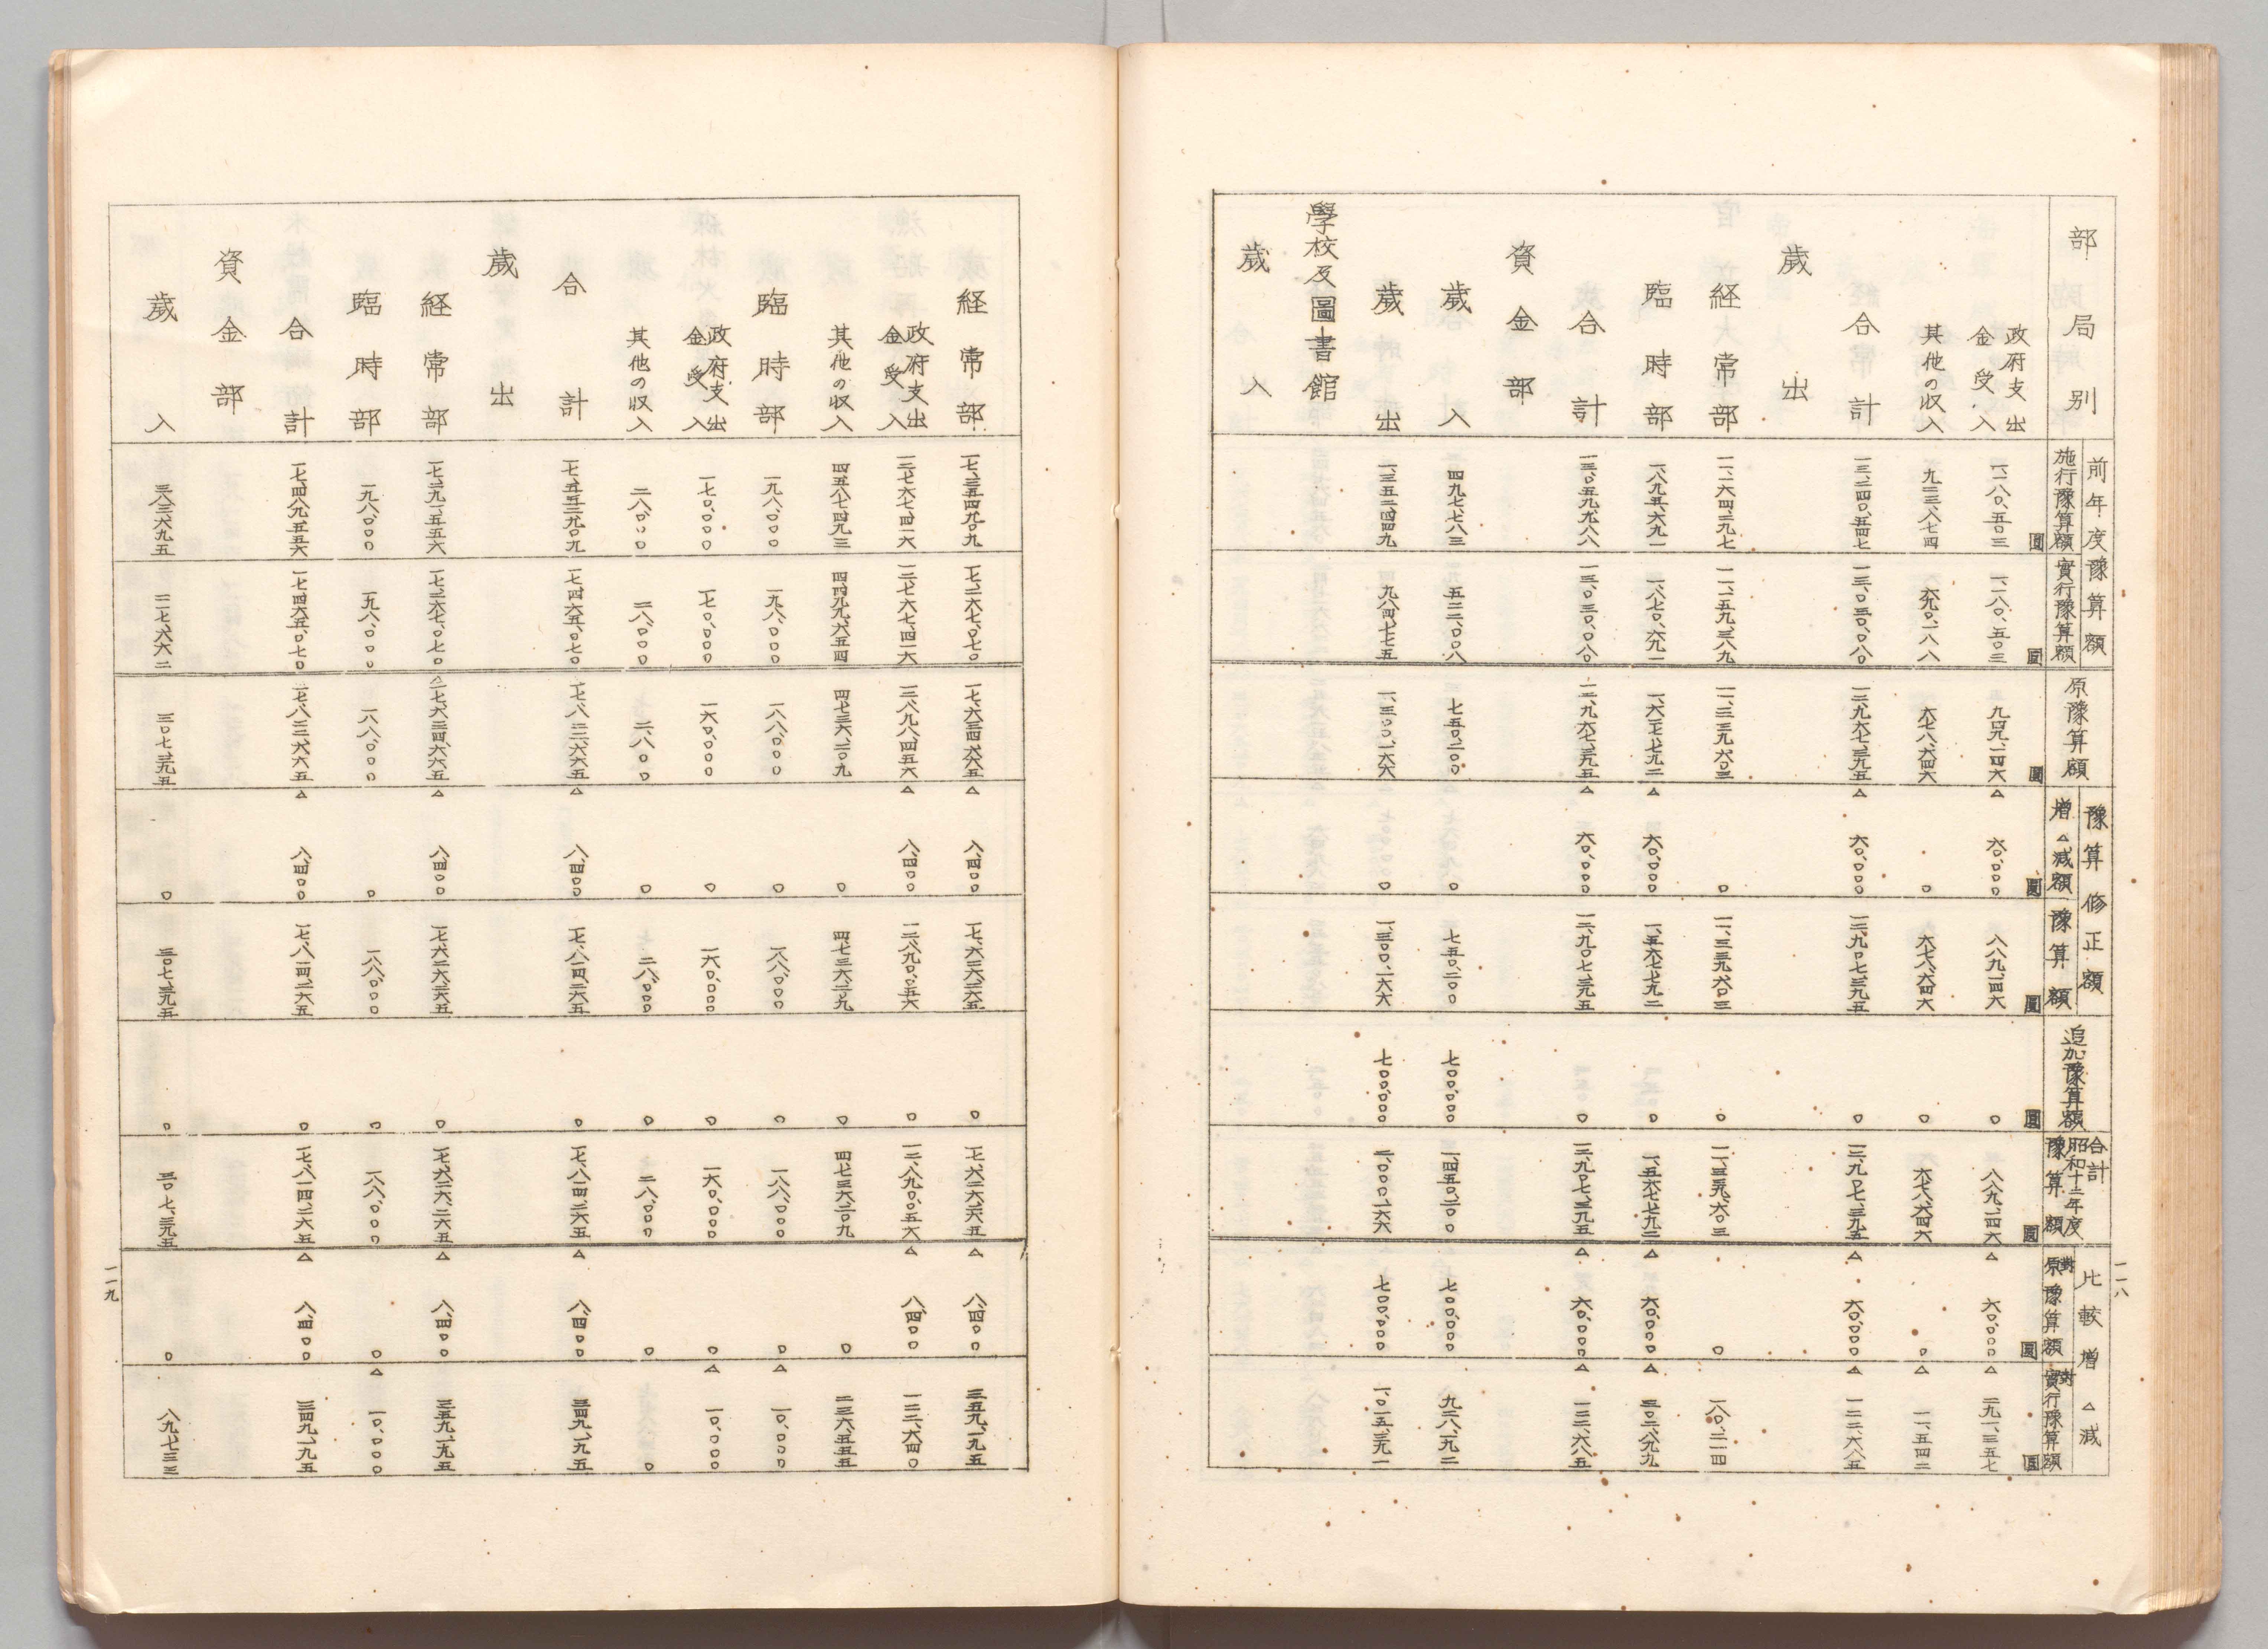 部局別
前年度豫算額
施行豫算額
實行豫算額
原豫算額
豫算修正額
増△減額
豫算額
追加豫算額
合計昭和十二年度豫算額
比較増△減
對原豫算額
對實行豫算額
圓 圓 圓 圓 圓 圓 圓 圓 圓
政府支出金受入 一、一八〇、五〇三 一、一八〇、五〇三 九四九、一四六 △六〇、〇〇〇 八八九、一四六 〇 八八九、一四六 △六〇、〇〇〇 △二九一、三五七
其他の収入 九二三、八七四 六九〇、一八八 六七八、六四六 〇 六七八、六四六 〇 六七八、六四六 〇 △一一、五四二
合計 一三、二四〇、五四七 一三、〇三〇、〇八〇 一二、九六七、三九五 △六〇、〇〇〇 一二、九〇七、三九五 〇 一二、九〇七、三九五 △六〇、〇〇〇 △一二二、六八五
歳出
経常部 一一、一六四、二九七 一一、一五九、三八九 一一、三三九、六〇三 〇 一一、三三九、六〇三 〇 一一、三三九、六〇三 〇 一八〇、二一四
臨時部 一、八九五、六九一 一、八七〇、六九一 一、六二七、七九二 △六〇、〇〇〇 一、五六七、七九二 〇 一、五六七、七九二 △六〇、〇〇〇 △三〇二、八九九
合計 一三、〇五九、九八八 一三、〇三〇、〇八〇 一二、九六七、三九五 △六〇、〇〇〇 一二、九〇七、三九五 〇 一二、九〇七、三九五 △六〇、〇〇〇 △一二二、六八五
資金部
歳入 四九七、七八三 五二二、〇〇八 七五〇、二〇〇 〇 七五〇、二〇〇 七〇〇、〇〇〇 一、四五〇、二〇〇 七〇〇、〇〇〇 九二八、一九二
歳出 一、三五二、四四九 九八四、七七五 一、三〇〇、一六六 〇 一、三〇〇、一六六 七〇〇、〇〇〇 二、〇〇〇、一六六 七〇〇、〇〇〇 一、〇一五、三九一
學校及圖書館
歳入
一一八
経常部 一七、三五四、九〇九 一七、二六七、〇七〇 一七、六三四、六六五 △八、四〇〇 一七、六二六、二六五 〇 一七、六二六、二六五 △八、四〇〇 三五九、一九五
政府支出金受入 一二、七六七、四一六 一二、七六七、四一六 一二、八九八、四五六 △八、四〇〇 一二、八九〇、〇五六 〇 一二、八九〇、〇五六 △八、四〇〇 一二二、六四〇
其他の収入 四、五八七、四九三 四、四九九、六五四 四、七三六、二〇九 〇 四、七三六、二〇九 〇 四、七三六、二〇九 〇 二三六、五五五
臨時部 一九八、〇〇〇 一九八、〇〇〇 一八八、〇〇〇 〇 一八八、〇〇〇 〇 一八八、〇〇〇 〇 △一〇、〇〇〇
政府支出金受入 一七〇、〇〇〇 一七〇、〇〇〇 一六〇、〇〇〇 〇 一六〇、〇〇〇 〇 一六〇、〇〇〇 〇 △一〇、〇〇〇
其他の収入 二八、〇〇〇 二八、〇〇〇 二八、〇〇〇 〇 二八、〇〇〇 〇 二八、〇〇〇 〇 〇
合計 一七、五五二、九〇九 一七、四六五、〇七〇 一七、八二二、六六五 △八、四〇〇 一七、八一四、二六五 〇 一七、八一四、二六五 △八、四〇〇 三四九、一九五
歳出
経常部 一七、二九一、五五六 一七、二六七、〇七〇 一七、六三四、六六五 △八、四〇〇 一七、六二六、二六五 〇 一七、六二六、二六五 △八、四〇〇 三五九、一九五
臨時部 一九八、〇〇〇 一九八、〇〇〇 一八八、〇〇〇 〇 一八八、〇〇〇 〇 一八八、〇〇〇 〇 △一〇、〇〇〇
合計 一七、四八九、五五六 一七、四六五、〇七〇 一七、八二二、六六五 △八、四〇〇 一七、八一四、二六五 〇 一七、八一四、二六五 △八、四〇〇 三四九、一九五
資金部
歳入 三八三、六九五 二一七、六六二 三〇七、三九五 〇 三〇七、三九五 〇 三〇七、三九五 〇 八九、七三三
一一九